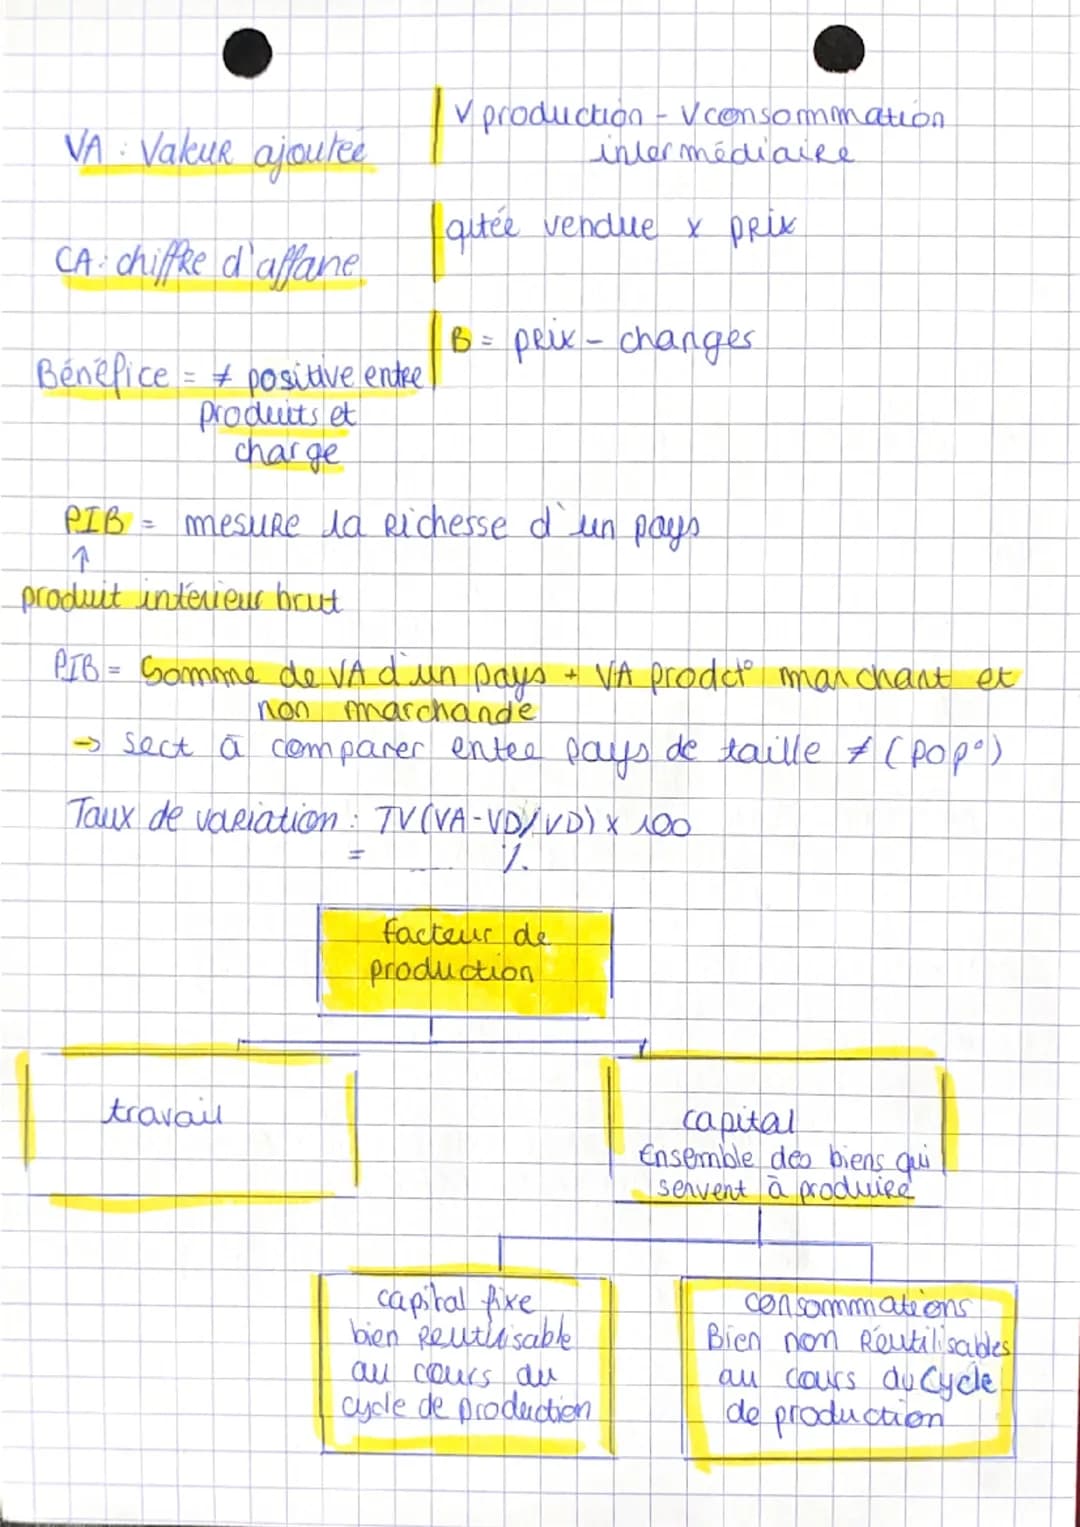 VA : Valeur ajoutée
V production - V consommation
intermédiaire
CA : chiffre d'affaire
qutée vendue x prix
Bénéfice = ≠ positive entre
produits et
charge
B = prix - changes
PIB = mesure la richesse d'un pays
↑
produit intérieur brut
PIB = Somme de VA d'un pays + VA prodct° marchant et
non marchande
→ sect à comparer entre pays de taille ≠ (pop°)
Taux de variation : TV (VA-VD/VD) x 100
= ..... %
facteur de
production
travail
capital
Ensemble des biens qui
servent à produire
capital fixe
bien reutilisable
au cours du
cycle de production
consommations
Bien non réutilisables
au cours du cycle
de production